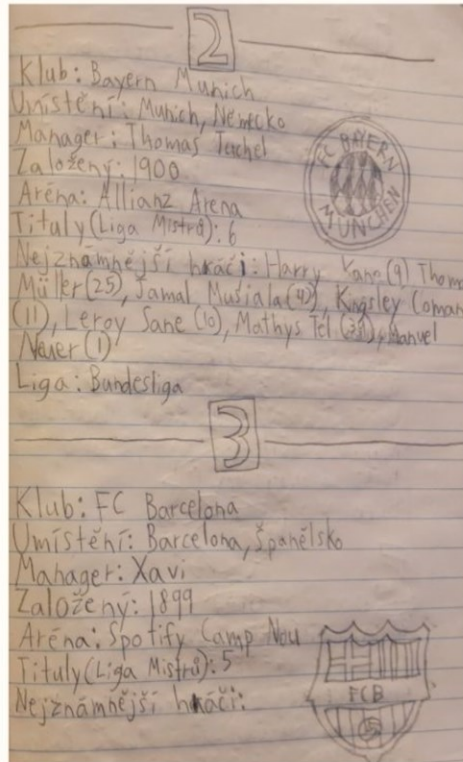 2
Klub: Bayern Munich
Umístění: Munich, Německo
Manager: Thomas Tuchel
Založený: 1900
Aréna: Allianz Arena
Tituly (Liga Mistrů): 6
FC BAYERN
MÜNCHEN
Nejznámnější hráči: Harry Kane (9) Thom
Müller (25), Jamal Musiala (42), Kingsley Coman
(11), Leroy Sane (10), Mathys Tel (39), Manuel
Neuer (1)
Liga: Bundesliga
3
Klub: FC Barcelona
Umístění: Barcelona, Španělsko
Manager: Xavi
Založený: 1899
Aréna: Spotify Camp Nou
Tituly (Liga Mistrů): 5
Nejznámnější hráči:
FCB